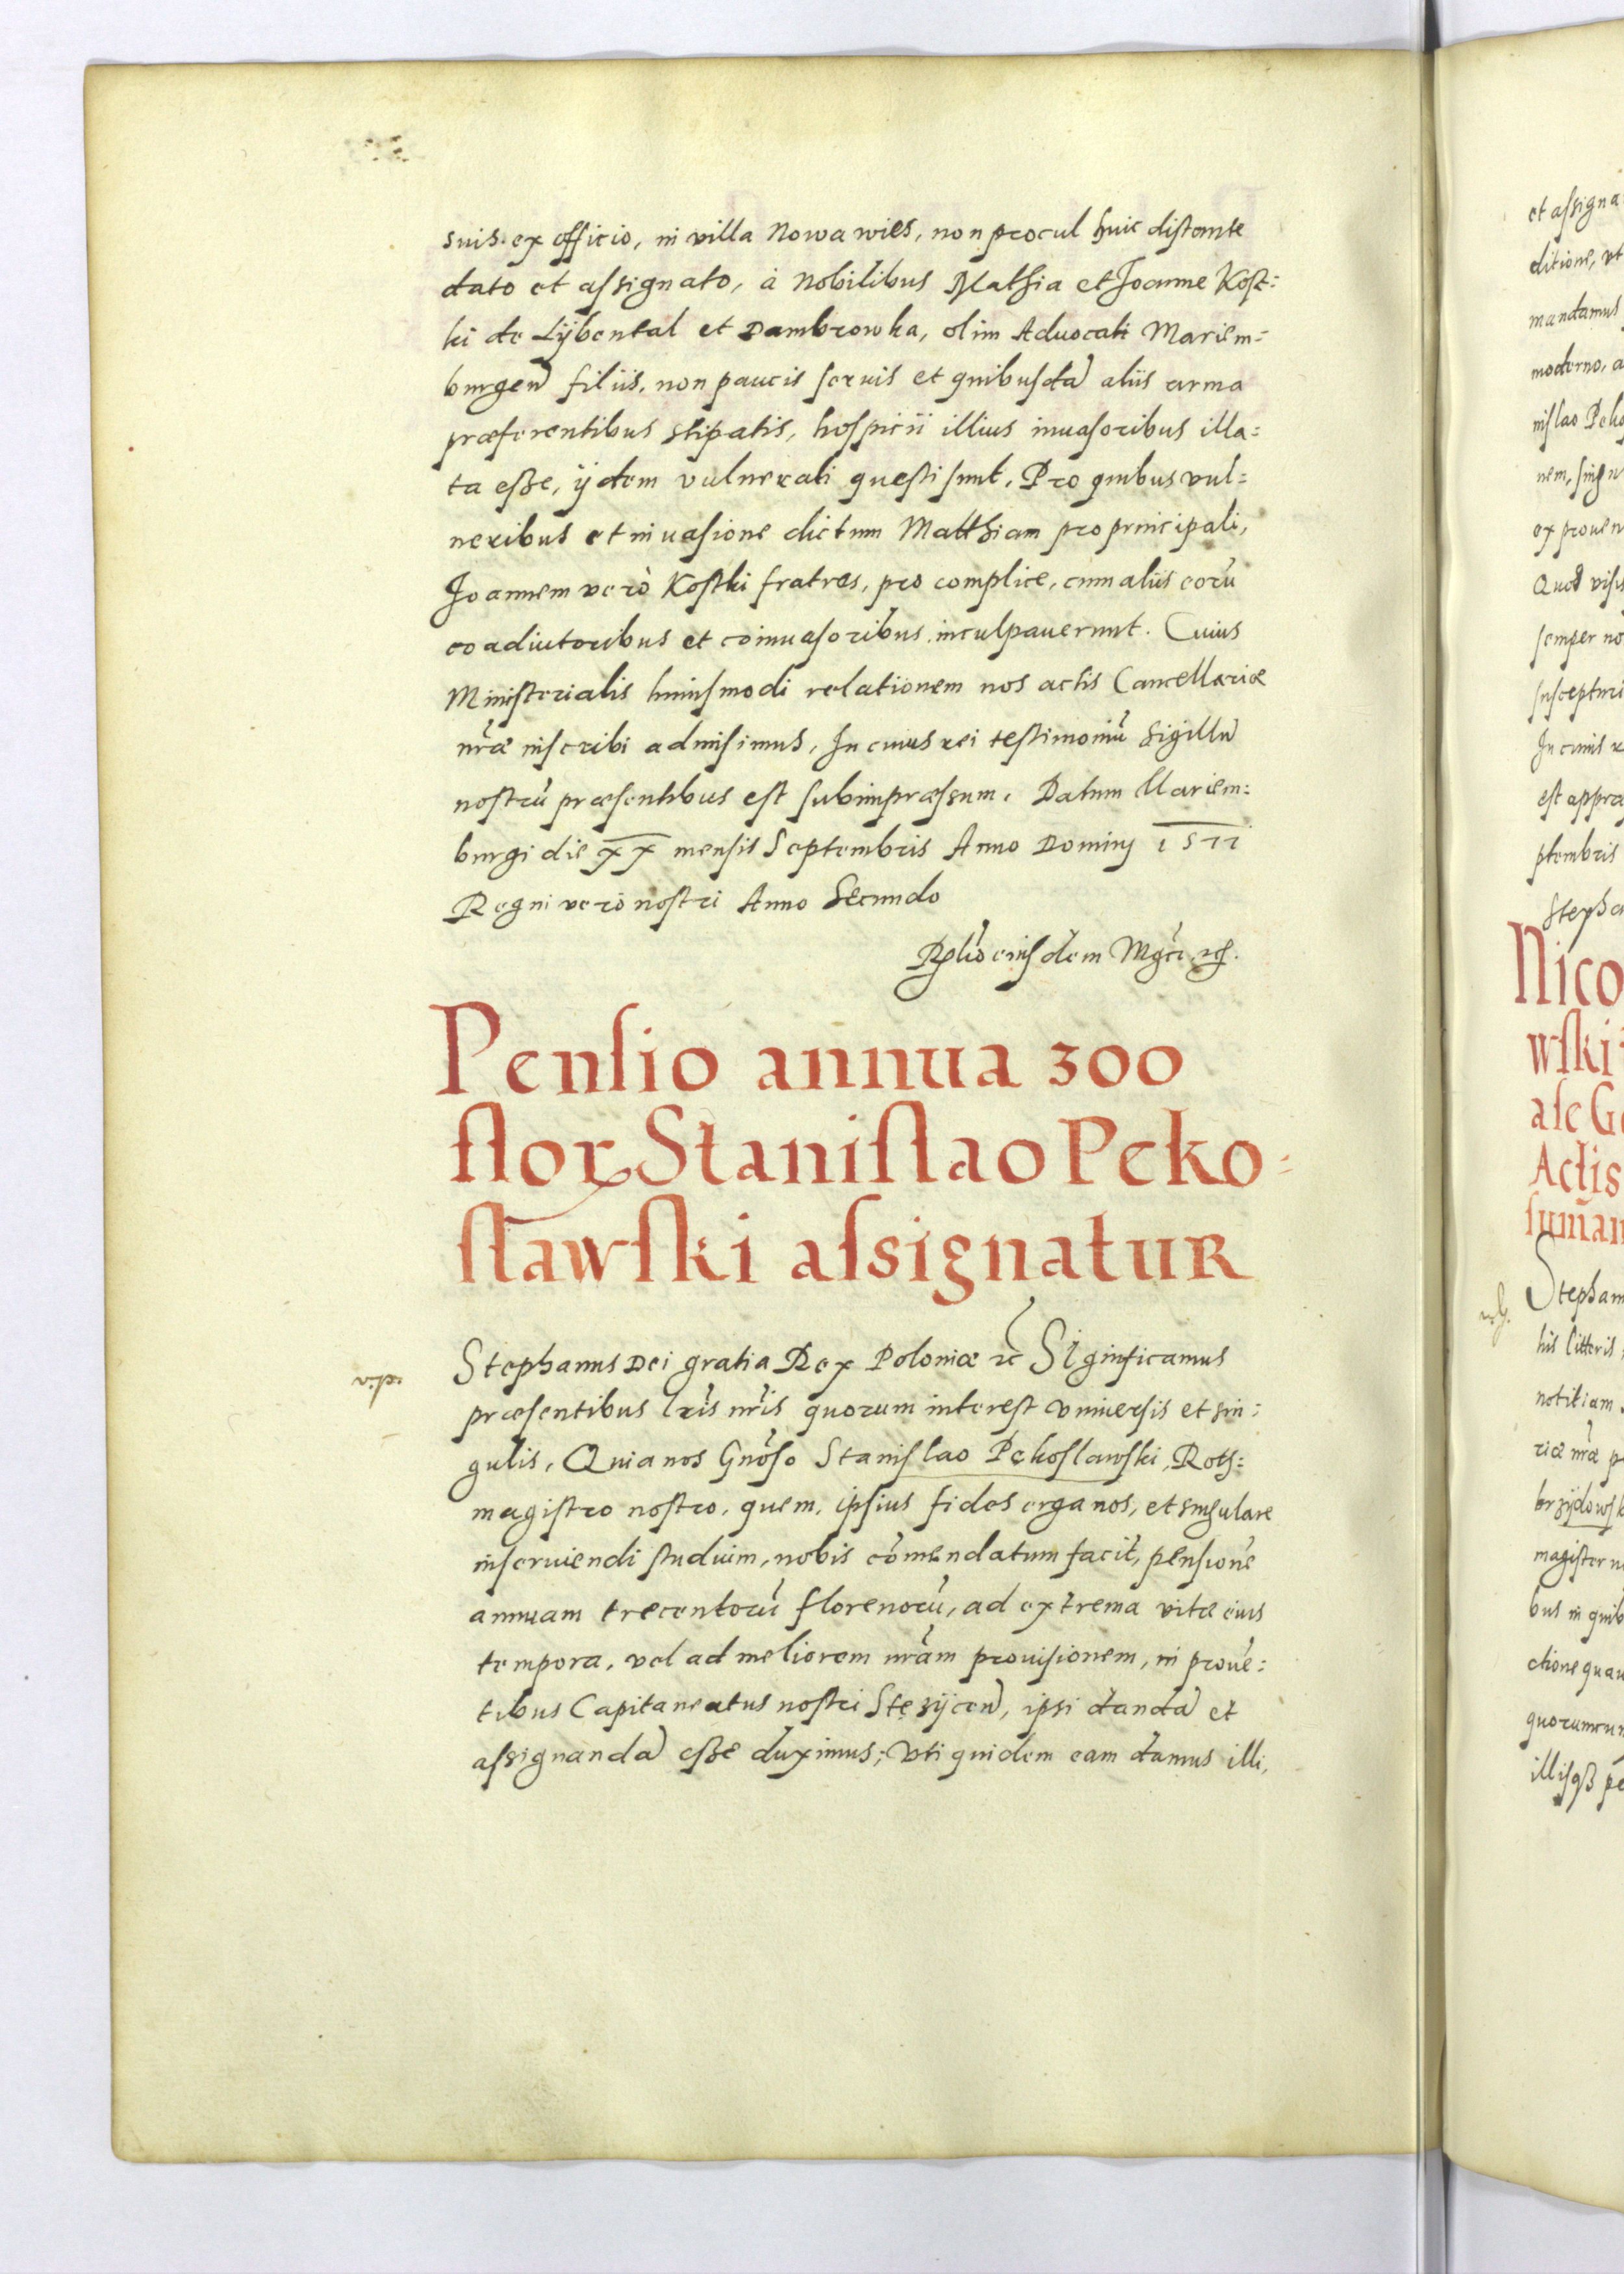 suis ex officio, in villa Nowawies, non procul huic distante
dato et assignato, à Nobilibus Mathia et Joanne Kost:
ki de Lÿbental et Dambrowka, olim Aduocati Mariem=
burgeñ filiis, non paucis seruis et quibusdã aliis arma
præferentibus stipatis, hospicii illius inuasoribus illa=
ta esse, ijdem vulnerati questi sunt. Pro quibus vul=
neribus et inuasione dictum Matthiam pro principali,
Joannem verò Kostki fratres, pro complice, cum aliis eorũ
coadiutoribus et coinuasoribus inculpauerunt. Cuius
Ministerialis huiusmodi relationem nos actis Cancellariæ
nr̃æ inscribi admisimus, In cuius rei testimoniũ Sigillũ
nostrũ præsentibus est subimpræssum. Datum Mariem:
burgi die XX mensis Septembris Anno Dominj 1577
Regni verò nostri Anno Secundo
eiusdem
Pensio annua 300
flor Stanislao Peko=
slawski assignatur
Stephanus Dei gratia Rex Poloniæ ꝛc̃ Significamus
præsentibus lr̃is nr̃is quorum interest vniuersis et sin:
gulis, Quia nos Gnõso Stanislao Pękoslawski, Roth:
magistro nostro, quem, ipsius fides erga nos, et singulare
inseruiendi studium, nobis cõmendatum facit, pensionẽ
annuam trecentorũ florenorũ, ad extrema vitæ eius
tempora, vel ad meliorem nr̃am prouisionem, in prouẽ:
tibus Capitaneatus nostri Stęzÿceñ, ipsi dandã et
assignandã esse duximus; Vti quidem eam damus illi,
et assigna
editione, vt
mandamus
moderno, a
nislao Peko
nem, singu
ex prouen
Quod
semper no
suscepturi
In cuius r
est appræ
ptembris
Stepha
Nico
wski
ase G
Actis
sum̃am
Stephan
his litteris
notitiam
riæ nr̃æ p
brzÿdowsk
magister n
bus in quib
ctione quau
quorumcun
illisqȝ pe